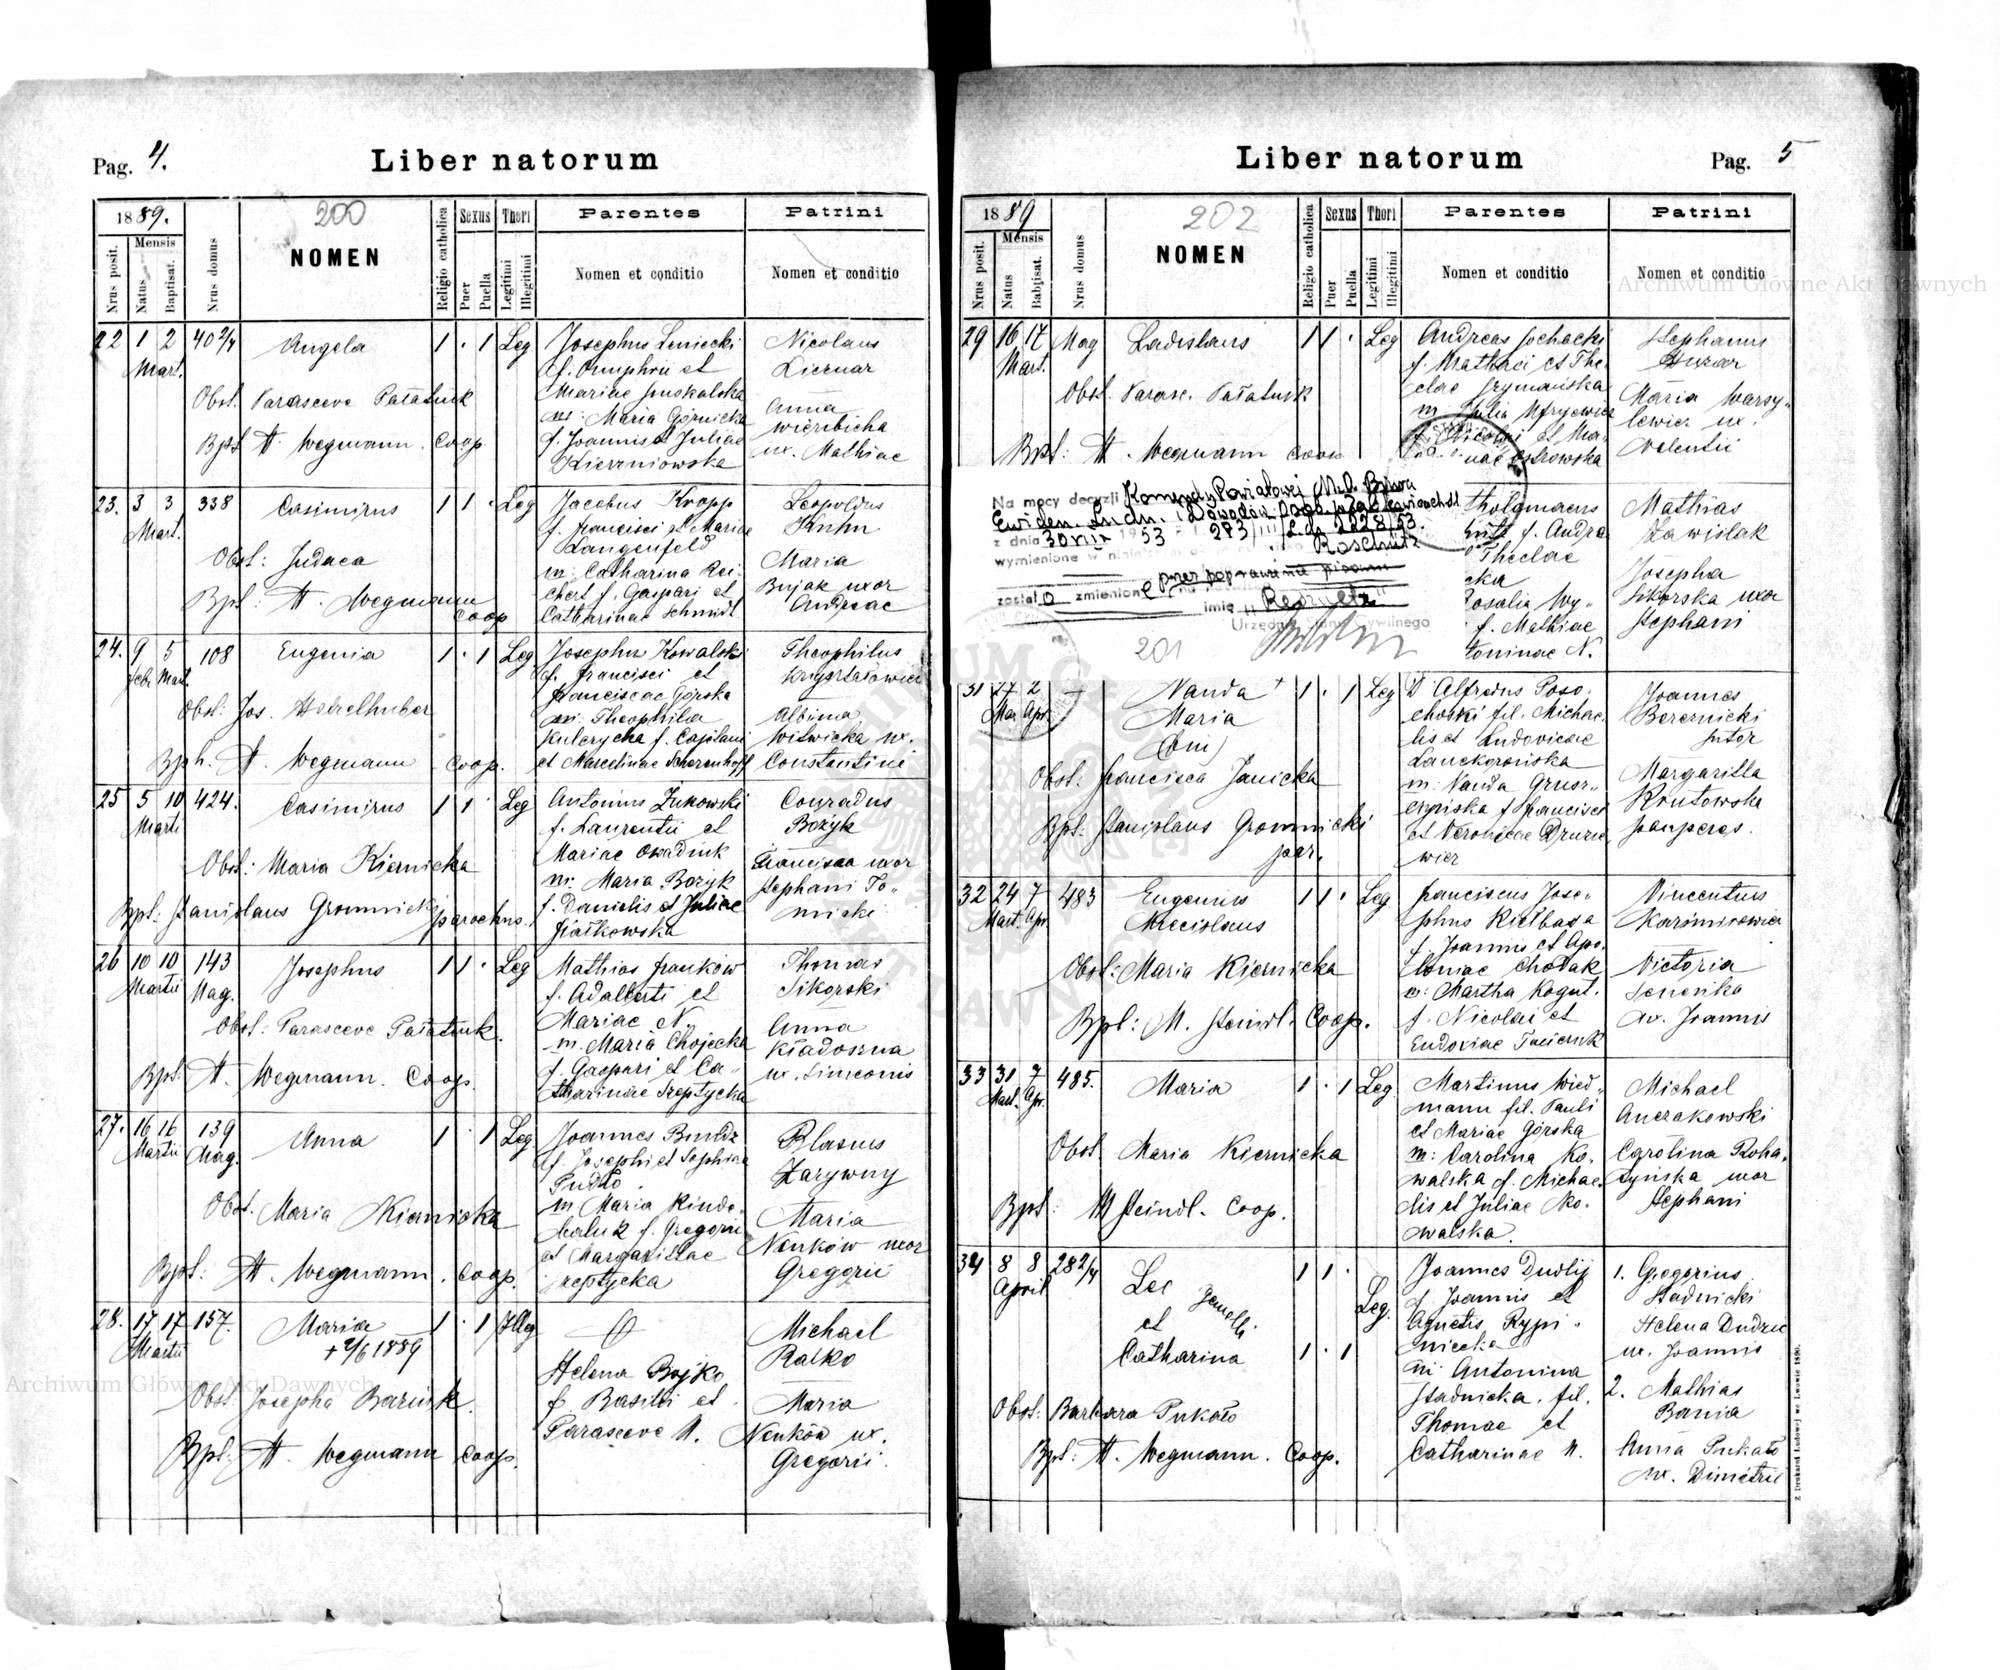 Pag. 4.
Liber natorum
1889.
200
Nrus posit.
Mensis
Natus
Baptisat.
Nrus domus
NOMEN
Religio catholica
Sexus
Puer
Puella
Thori
Legitimi
Illegitimi
Parentes
Nomen et conditio
Patrini
Nomen et conditio
22 1 2 40 2/4 Angela 1 . 1 Leg
Mart.
Obst. Parasceve Pałatiuk
Bpt. A. Wegmann. Coop
Josephus
f. Onuphrii et
Mariae
m: Maria Górnicka
f. Joannis et Juliae
Nicolaus
Anna
ux. Mathiae
23. 3 3 338 Casimirus 1 1 . Leg
Mart.
Obst: Judaea
Bpt: A. Wegmann
Coop
Jacobus Kropp
f. Francisci et Mariae
Langenfeld
m: Catharina Rei-
chert f. Gaspari et
Catharinae Schmidt
Leopoldus
Kuhn
Maria
Bujak uxor
Andreae
24. 9 5 108 Eugenia 1 . 1 Leg
Febr. Mart.
Obst: Jos. Heidelhuber
Bpt. A. Wegmann Coop.
Josephus Kowalski
f. Francisci et
Franciscae Górska
m: Theophila
et Marcelinae
Theophilus
Albina
Witwicka ux.
Constantini
25 5 10 424. Casimirus 1 1 . Leg
Martii
Obst: Maria Kiernicka
Bpt: Stanislaus Gromnicki parochus.
Antonius Żukowski
f. Laurentii et
Mariae
m: Maria Bożyk
f. Danielis et Juliae
Fiałkowska
Conradus
Bożyk
Francisca uxor
Stephani To-
micki
26 10 10 143 Josephus 1 1 . Leg
Martii Mag.
Obst: Parasceve Pałatiuk.
Bpt: A. Wegmann. Coop.
Mathias Franków
f. Adalberti et
Mariae N.
m. Maria Chojecka
f. Gaspari et Ca-
tharinae Szeptycka
Thomas
Sikorski
Anna
Kładoszna
ux. Simeonis
27. 16 16 139 Anna 1 . 1 Leg
Martii Mag.
Obst. Maria Kiernicka
Bpt: A. Wegmann. Coop.
Joannes
f. Josephi et Sophiae
Pudło.
m Maria
f. Gregorii
et Margarithae
Szeptycka
Blasius
Zarywny
Maria
Nenków uxor
Gregorii
28. 17 17 157. Maria 1 . 1 Illeg
Martii + 2/6 1889
Obst: Josepha
Bpt: A. Wegmann Coop.
Helena Bojko
f. Basilii et
Parasceve N.
Michael
Ratko
Maria
Nenków ux.
Gregorii.
Liber natorum
Pag. 5
1889
202
Nrus posit.
Mensis
Natus
Babtisat.
Nrus domus
NOMEN
Religio catholica
Sexus
Puer
Puella
Thori
Legitimi
Illegitimi
Parentes
Nomen et conditio
Patrini
Nomen et conditio
29 16 17 Mag Ladislaus 1 1 . Leg
Mart.
Obst. Parasc. Pałatiuk
Bpt: A. Wegmann Coop
Andreas Sochacki
f. Mathaei et The-
clae Szymańska
m. Julia
f. Nicolai et Ma-
Ostrowska
Stephanus
Huzar
Maria Warsy-
lewicz ux.
Valentii
Na mocy decyzji Komendy Powiatowej M.O. Biura
Ewiden. Ludn. i Dowodów Osob.
z dnia 30 VIII 1953 L.dz. 2228/53.
wymienione w
przez poprawienie pisowni
został o zmienion e na
imię
Urzędnik Stanu Cywilnego
201
f. Andre
Theclae
cka
Rosalia Wy-
f. Mathiae
toninae N.
Mathias
Zawiślak
Josepha
Sikorska uxor
Stephani
31 27 2 – Vanda + 1 . 1 Leg
Mar. Apr. Maria
(bin)
Obst: Francisca Janicka
Bpt: Stanislaus Gromnicki
par.
D Alfredus Poso-
choski fil. Michae-
lis et Ludovicae
Lanckorońska
m. Vanda Grusz-
czyńska f. Francisci
et Veronicae Druże-
wicz
Joannes
Bereznicki
sutor
Margaritta
Krutowska
pauperes.
32 24 7 483 Eugenius 1 1 . Leg
Mart. Apr. Miecislaus
Obst: Maria Kiernicka
Bpt: M. Steindl. Coop.
Franciscus Jose-
phus Kiełbasa
f. Joannis et Apo-
loniae Chodak
m: Martha Kogut.
f. Nicolai et
Eudoxiae
Vincentius
Kazimirowicz
Victoria
ux. Joannis
33 31 7 485. Maria 1 . 1 Leg
Mart. Apr.
Obst. Maria Kiernicka
Bpt: M Steindl. Coop.
Martinus Wied-
mann fil. Pauli
et Mariae Górska
m: Carolina Ko-
walska f. Michae-
lis et Juliae Ko-
walska.
Michael
Anczakowski
Carolina Roha-
tyńska uxor
Stephani
34 8 8 282/4 Leo 1 1 .
April
et gemelli.
Leg.
Catharina 1 . 1
Obst: Barbara Pukało
Bpt: A. Wegmann. Coop.
Joannes
f. Joannis et
Agnetis Rypi-
niecka
m: Antonina
Stadnicka. fil.
Thomae et
Catharinae N.
1. Gregorius
Stadnicki
Helena
ux. Joannis
2. Mathias
Bania
Anna Pukało
ux. Dimetrii
Z Drukarni Ludowej we Lwowie 1880.
Archiwum Główne Akt Dawnych
Archiwum Główne Akt Dawnych